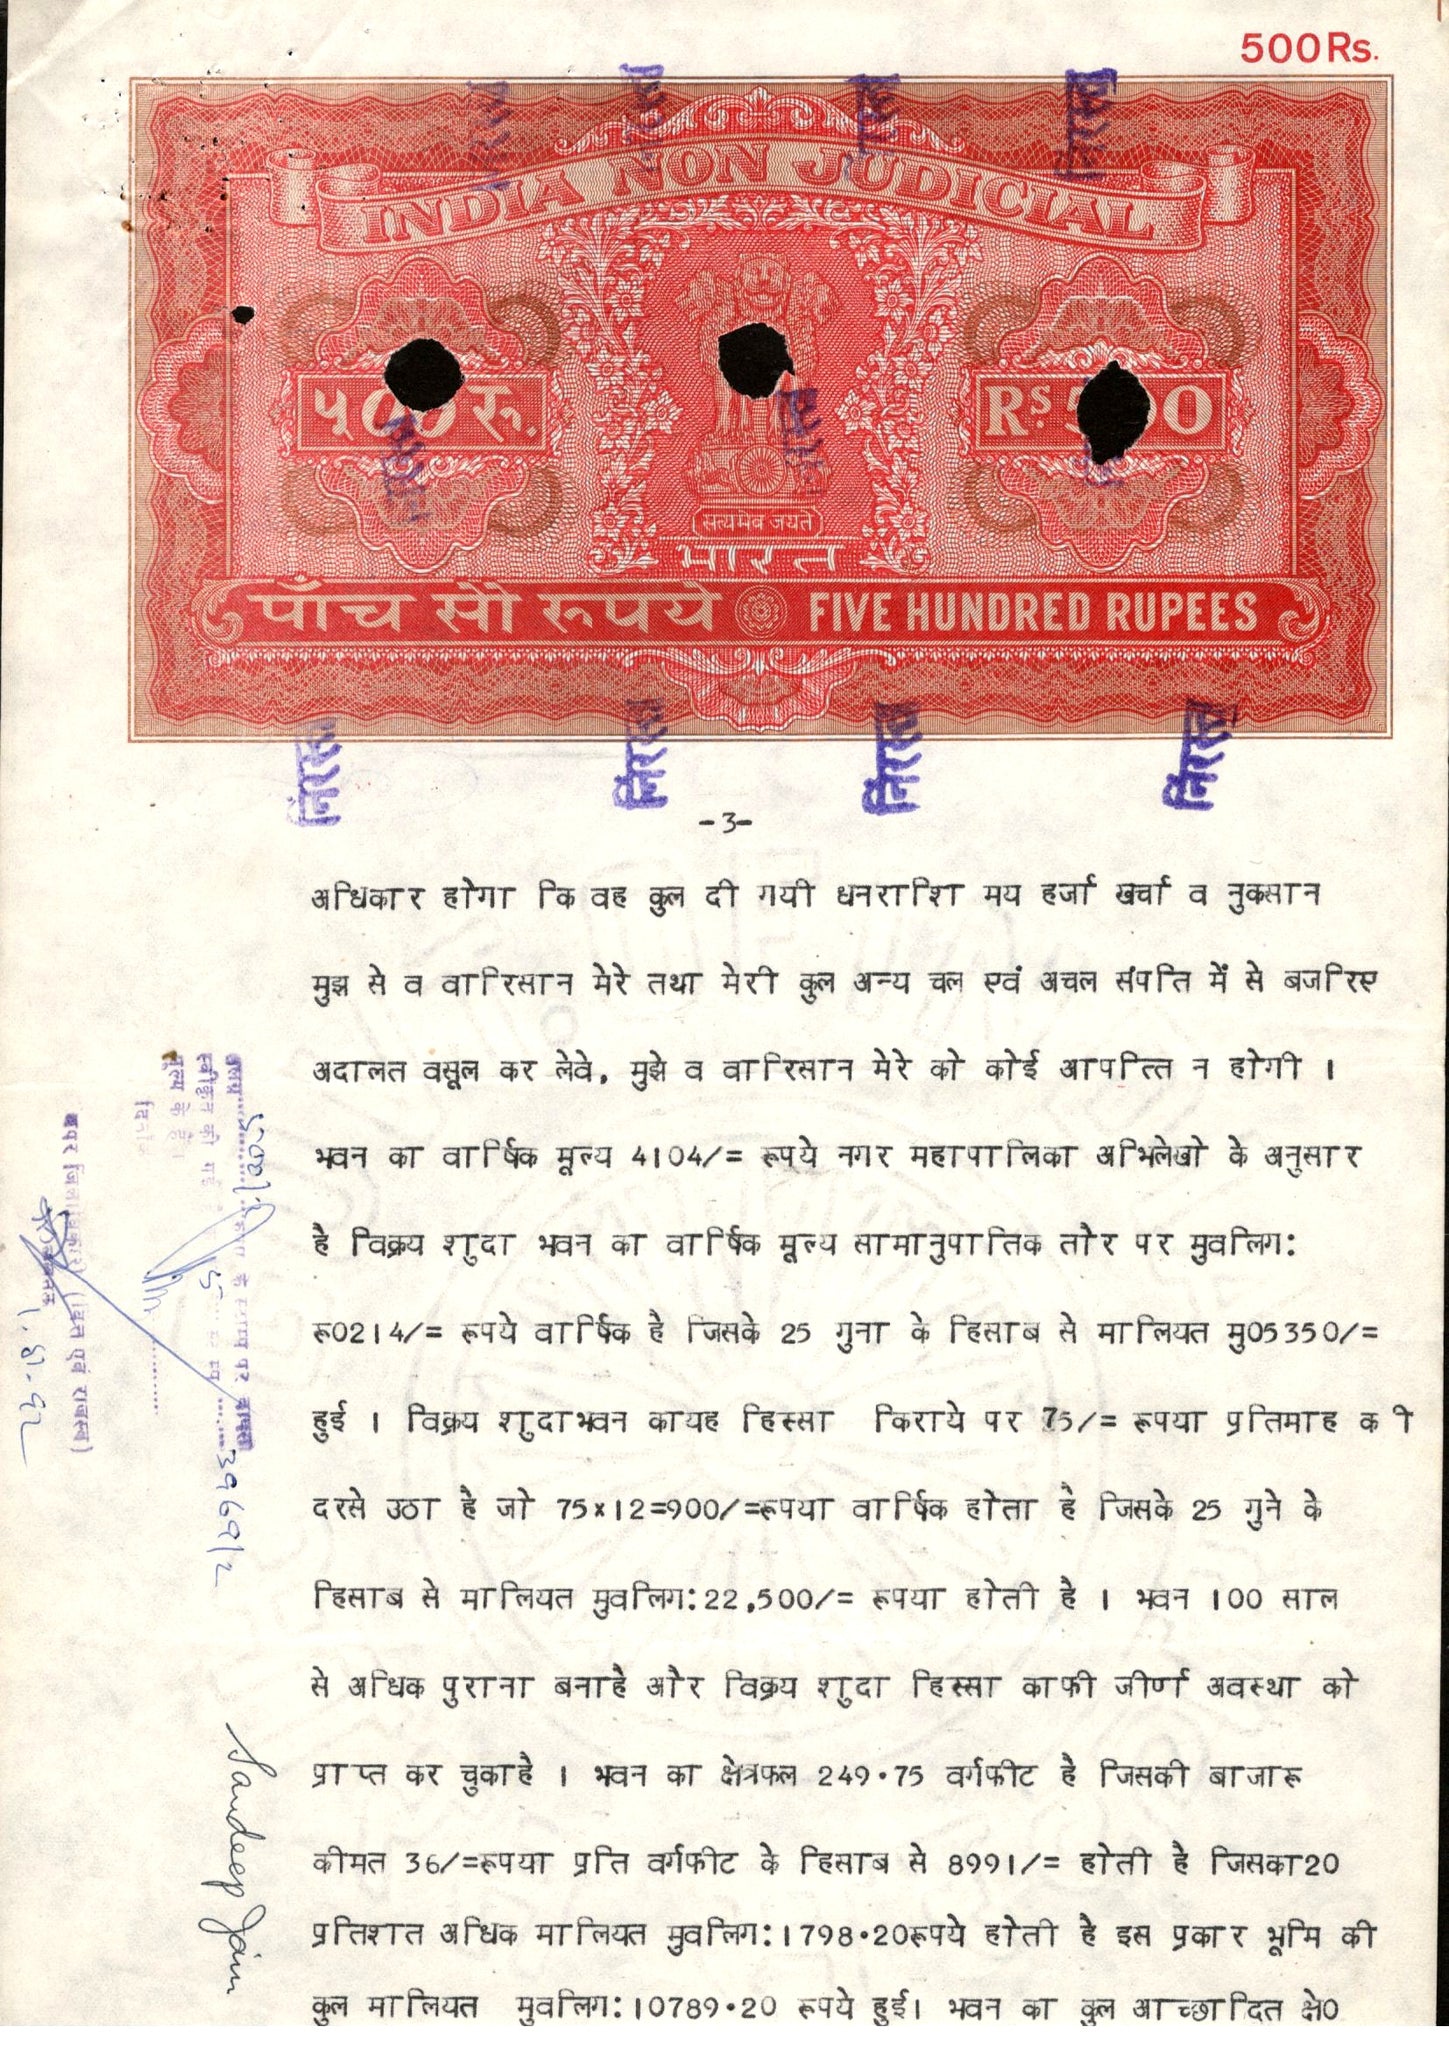 500Rs.
INDIA NON JUDICIAL
५०० रु.
RS. 500
सत्यमेव जयते
भारत
पाँच सौ रुपये FIVE HUNDRED RUPEES
निरस्त निरस्त निरस्त निरस्त
-3-
अधिकार होगा कि वह कुल दी गयी धनराशि मय हर्जा खर्चा व नुकसान
मुझ से व वारिसान मेरे तथा मेरी कुल अन्य चल एवं अचल संपति में से बजरिए
अदालत वसूल कर लेवे, मुझे व वारिसान मेरे को कोई आपत्ति न होगी ।
भवन का वार्षिक मूल्य 4104/= रूपये नगर महापालिका अभिलेखो के अनुसार
है विक्रय शुदा भवन का वार्षिक मूल्य सामानुपातिक तौर पर मुवलिग:
रू0214/= रूपये वार्षिक है जिसके 25 गुना के हिसाब से मालियत मु05350/=
हुई । विक्रय शुदाभवन कायह हिस्सा किराये पर 75/= रूपया प्रतिमाह की
दरसे उठा है जो 75×12=900/=रूपया वार्षिक होता है जिसके 25 गुने के
हिसाब से मालियत मुवलिग:22,500/= रूपया होती है । भवन 100 साल
से अधिक पुराना बनाहै और विक्रय शुदा हिस्सा काफी जीर्ण अवस्था को
प्राप्त कर चुकाहै । भवन का क्षेत्रफल 249.75 वर्गफीट है जिसकी बाजारू
कीमत 36/=रूपया प्रति वर्गफीट के हिसाब से 8991/= होती है जिसका20
प्रतिशत अधिक मालियत मुवलिग:1798.20रूपये होती है इस प्रकार भूमि की
कुल मालियत मुवलिग:10789.20 रूपये हुई। भवन का कुल आच्छादित क्षे0
Sandeep Jain